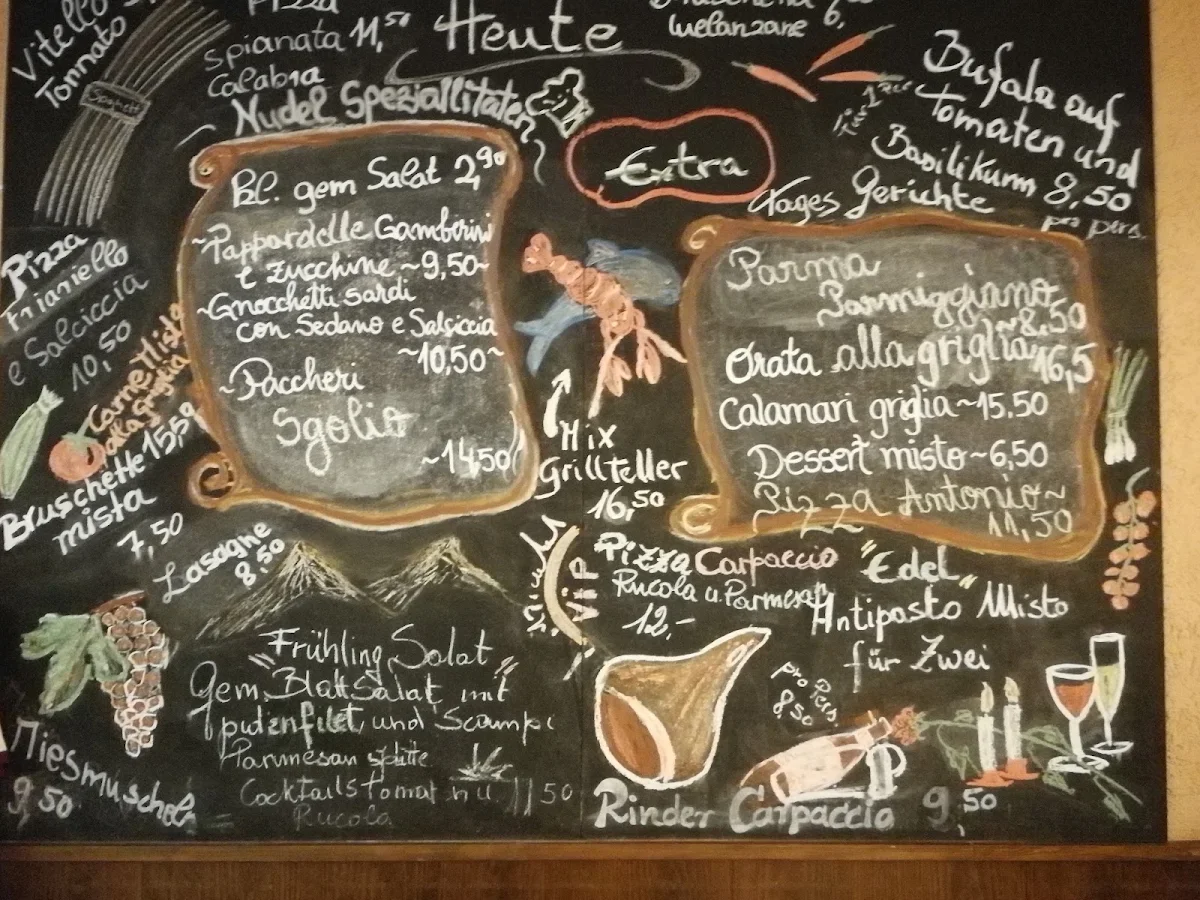 Vitello
Tonnato
Spaghetti
Pizza
Spianata 11,50
Calabria
Heute
6,
welanzane
Nudel Speziallitäten
Extra
Bufala auf
Tomaten und
Basilikum 8,50
pro pers.
Tages Gerichte
Bl. gem Salat 2,90
~Pappardelle Gamberini
e Zucchine ~9,50~
~Gnocchetti Sardi
con Sedano e Salsiccia
~10,50~
~Paccheri
Sgolio
~14,50
Parma
Parmiggiano
~8,50
Orata alla griglia 16,5
Calamari griglia ~15,50
Dessert misto ~6,50
Pizza Antonio ~
11,50
Pizza
Friariello
e Salciccia
10,50
Carne Misto
alla Griglia
15,50
Bruschette
mista
7,50
Lasagne
8,50
Mix
Grillteller
16,50
VIP
Pizza Carpaccio
Rucola u. Parmesan
12,-
"Edel"
Antipasto Misto
für Zwei
pro Pers.
8,50
"Frühling Salat"
Gem. Blattsalat mit
putenfilet und Scampi
Parmesan splitte
Cocktailstomaten u 11 50
Rucola
Miesmuscheln
9,50
Rinder Carpaccio 9,50